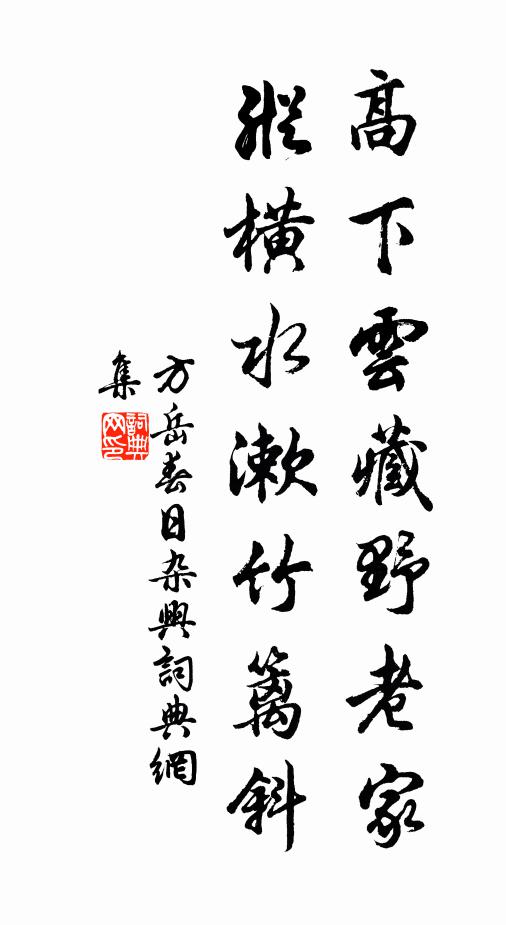 高下雲藏野老家
縱橫水漱竹籬斜
方岳春日杂興詞典網
集
詞典
网印